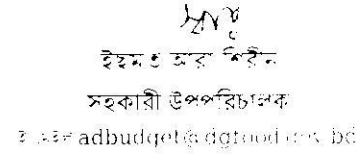 ইহমত আরা শিরীন
সহকারী উপপরিচালক
adbudget@dgfood.gov.bd